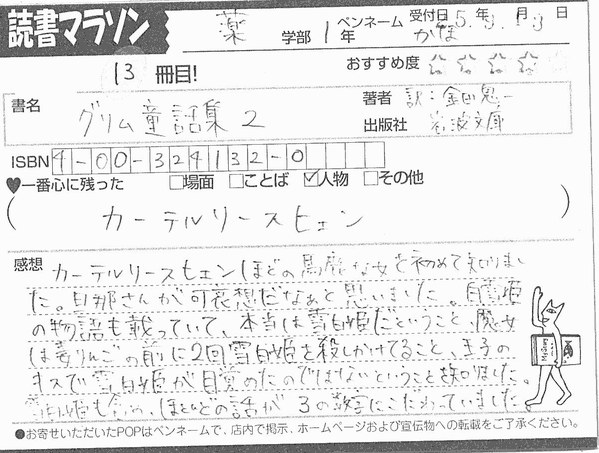 読書マラソン 薬 学部 1年 ペンネーム かほ 受付日 5年3月3日
13 冊目! おすすめ度 ☆☆☆☆
書名 グリム童話集 2 著者 訳:金田鬼一
出版社 岩波文庫
ISBN 4-00-324132-0
♥一番心に残った □場面 □ことば ☑人物 □その他
( カーテルリースヒェン )
感想 カーテルリースヒェンほどの馬鹿な女を初めて知りまし
た。旦那さんが可哀想だなぁと思いました。白雪姫
の物語も載っていて、本当は雪白姫だということ、魔女
は毒りんごの前に2回雪白姫を殺しかけてること、王子の
キスで雪白姫が目覚めたのではないということを知りました。
雪白姫も含め、ほとんどの話が3の数字にこだわっていました。
●お寄せいただいたPOPはペンネームで、店内で掲示、ホームページおよび宣伝物への転載をご了承ください。